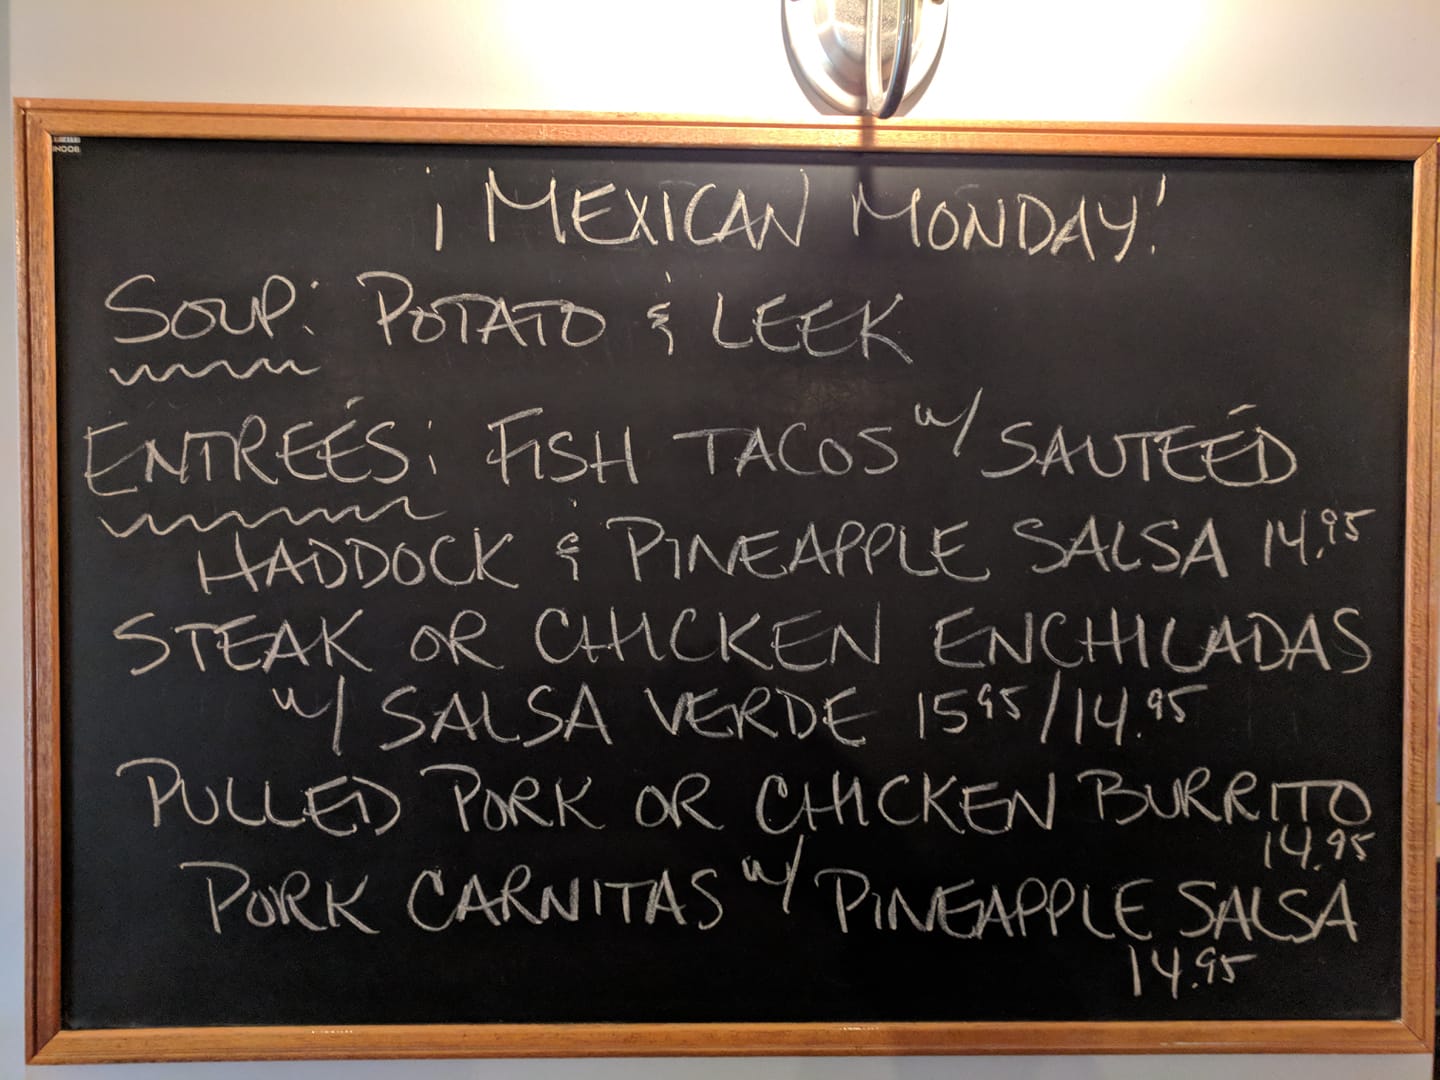 ¡MEXICAN MONDAY!
SOUP: POTATO & LEEK
ENTREÉS: FISH TACOS w/ SAUTEÉD
HADDOCK & PINEAPPLE SALSA 14.95
STEAK OR CHICKEN ENCHILADAS
w/ SALSA VERDE 1595/14.95
PULLED PORK OR CHICKEN BURRITO
14.95
PORK CARNITAS w/ PINEAPPLE SALSA
14.95